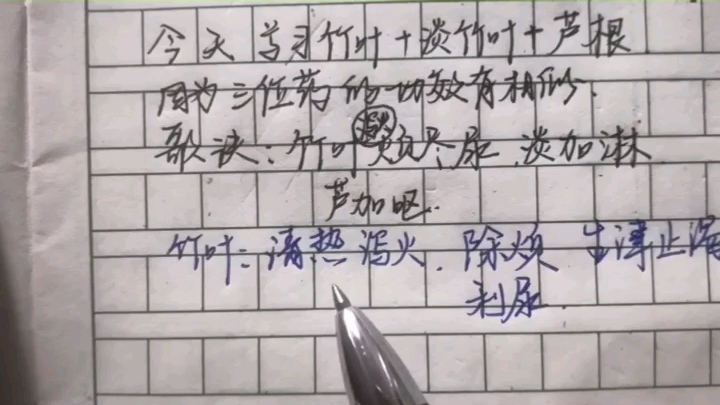 今天学习竹叶+淡竹叶+芦根
因为三位药的功效有相似.
歌诀:竹叶泻火烦尽尿 淡加淋
芦加呕.
竹叶:清热泻火.除烦 生津止渴
利尿.